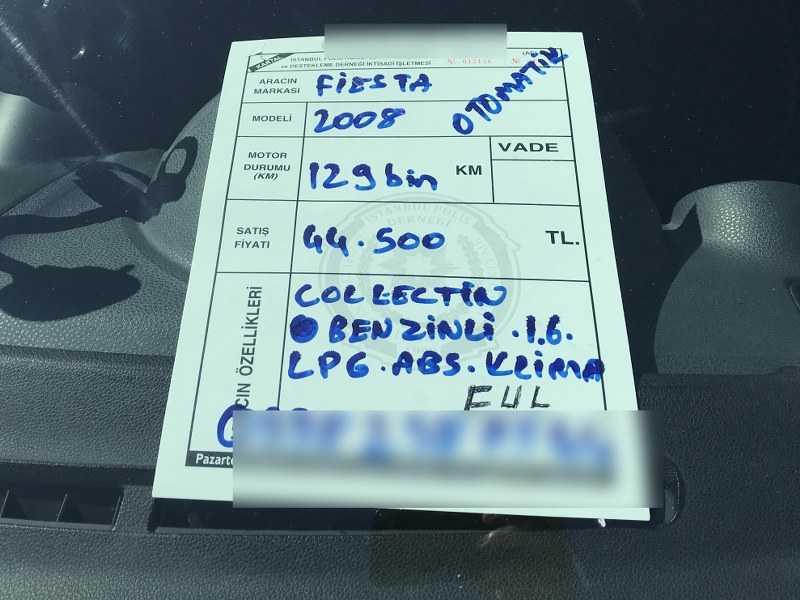 KARTAL
İSTANBUL POLİS
ve DESTEKLEME DERNEĞİ İKTİSADİ İŞLETMESİ
ARACIN MARKASI FİESTA OTOMATİK
MODELİ 2008
MOTOR DURUMU (KM) 129 bin KM VADE
SATIŞ FİYATI 44.500 TL.
CIN ÖZELLİKLERİ
COLLECTİN
BENZİNLİ . 1.6.
LPG . ABS . KLİMA
FUL
Pazarte